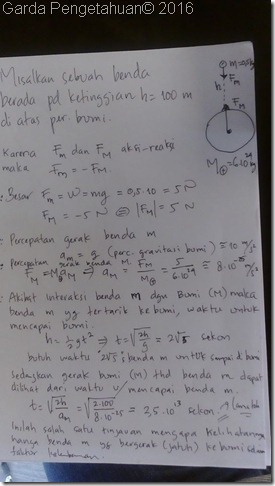 Garda Pengetahuan© 2016
Misalkan sebuah benda
berada pd ketinggian h= 100 m
di atas per. bumi.
m=0,5 kg
Fm
h
FM
M⊕=6.10²⁴ kg
Karena Fm dan FM aksi-reaksi
maka Fm = - FM.
• Besar Fm = W = mg = 0,5.10 = 5 N
FM = -5 N ⇒ |FM| = 5 N
• Percepatan gerak benda m
am = g (perc. gravitasi bumi) ≈ 10 m/s²
• Percepatan gerak benda M.
FM = M⊕aM ⇒ aM = FM/M⊕ = 5/6.10²⁴ ≈ 8.10⁻²⁵ m/s²
• Akibat interaksi benda m dgn Bumi (M) maka
benda m yg tertarik ke bumi, waktu untuk
mencapai bumi.
h = ½gt² ⇒ t = √2h/g = 2√5 sekon
butuh waktu 2√5 s benda m untuk sampai di bumi
Sedangkan gerak bumi (M) thd benda m dapat
dilihat dari waktu u/ mencapai benda m.
t = √2h/am = √2.100/8.10⁻²⁵ ≈ 3,5.10¹³ sekon
Inilah salah satu mengapa kelihatannya
hanya benda m yg bergerak (jatuh) ke bumi